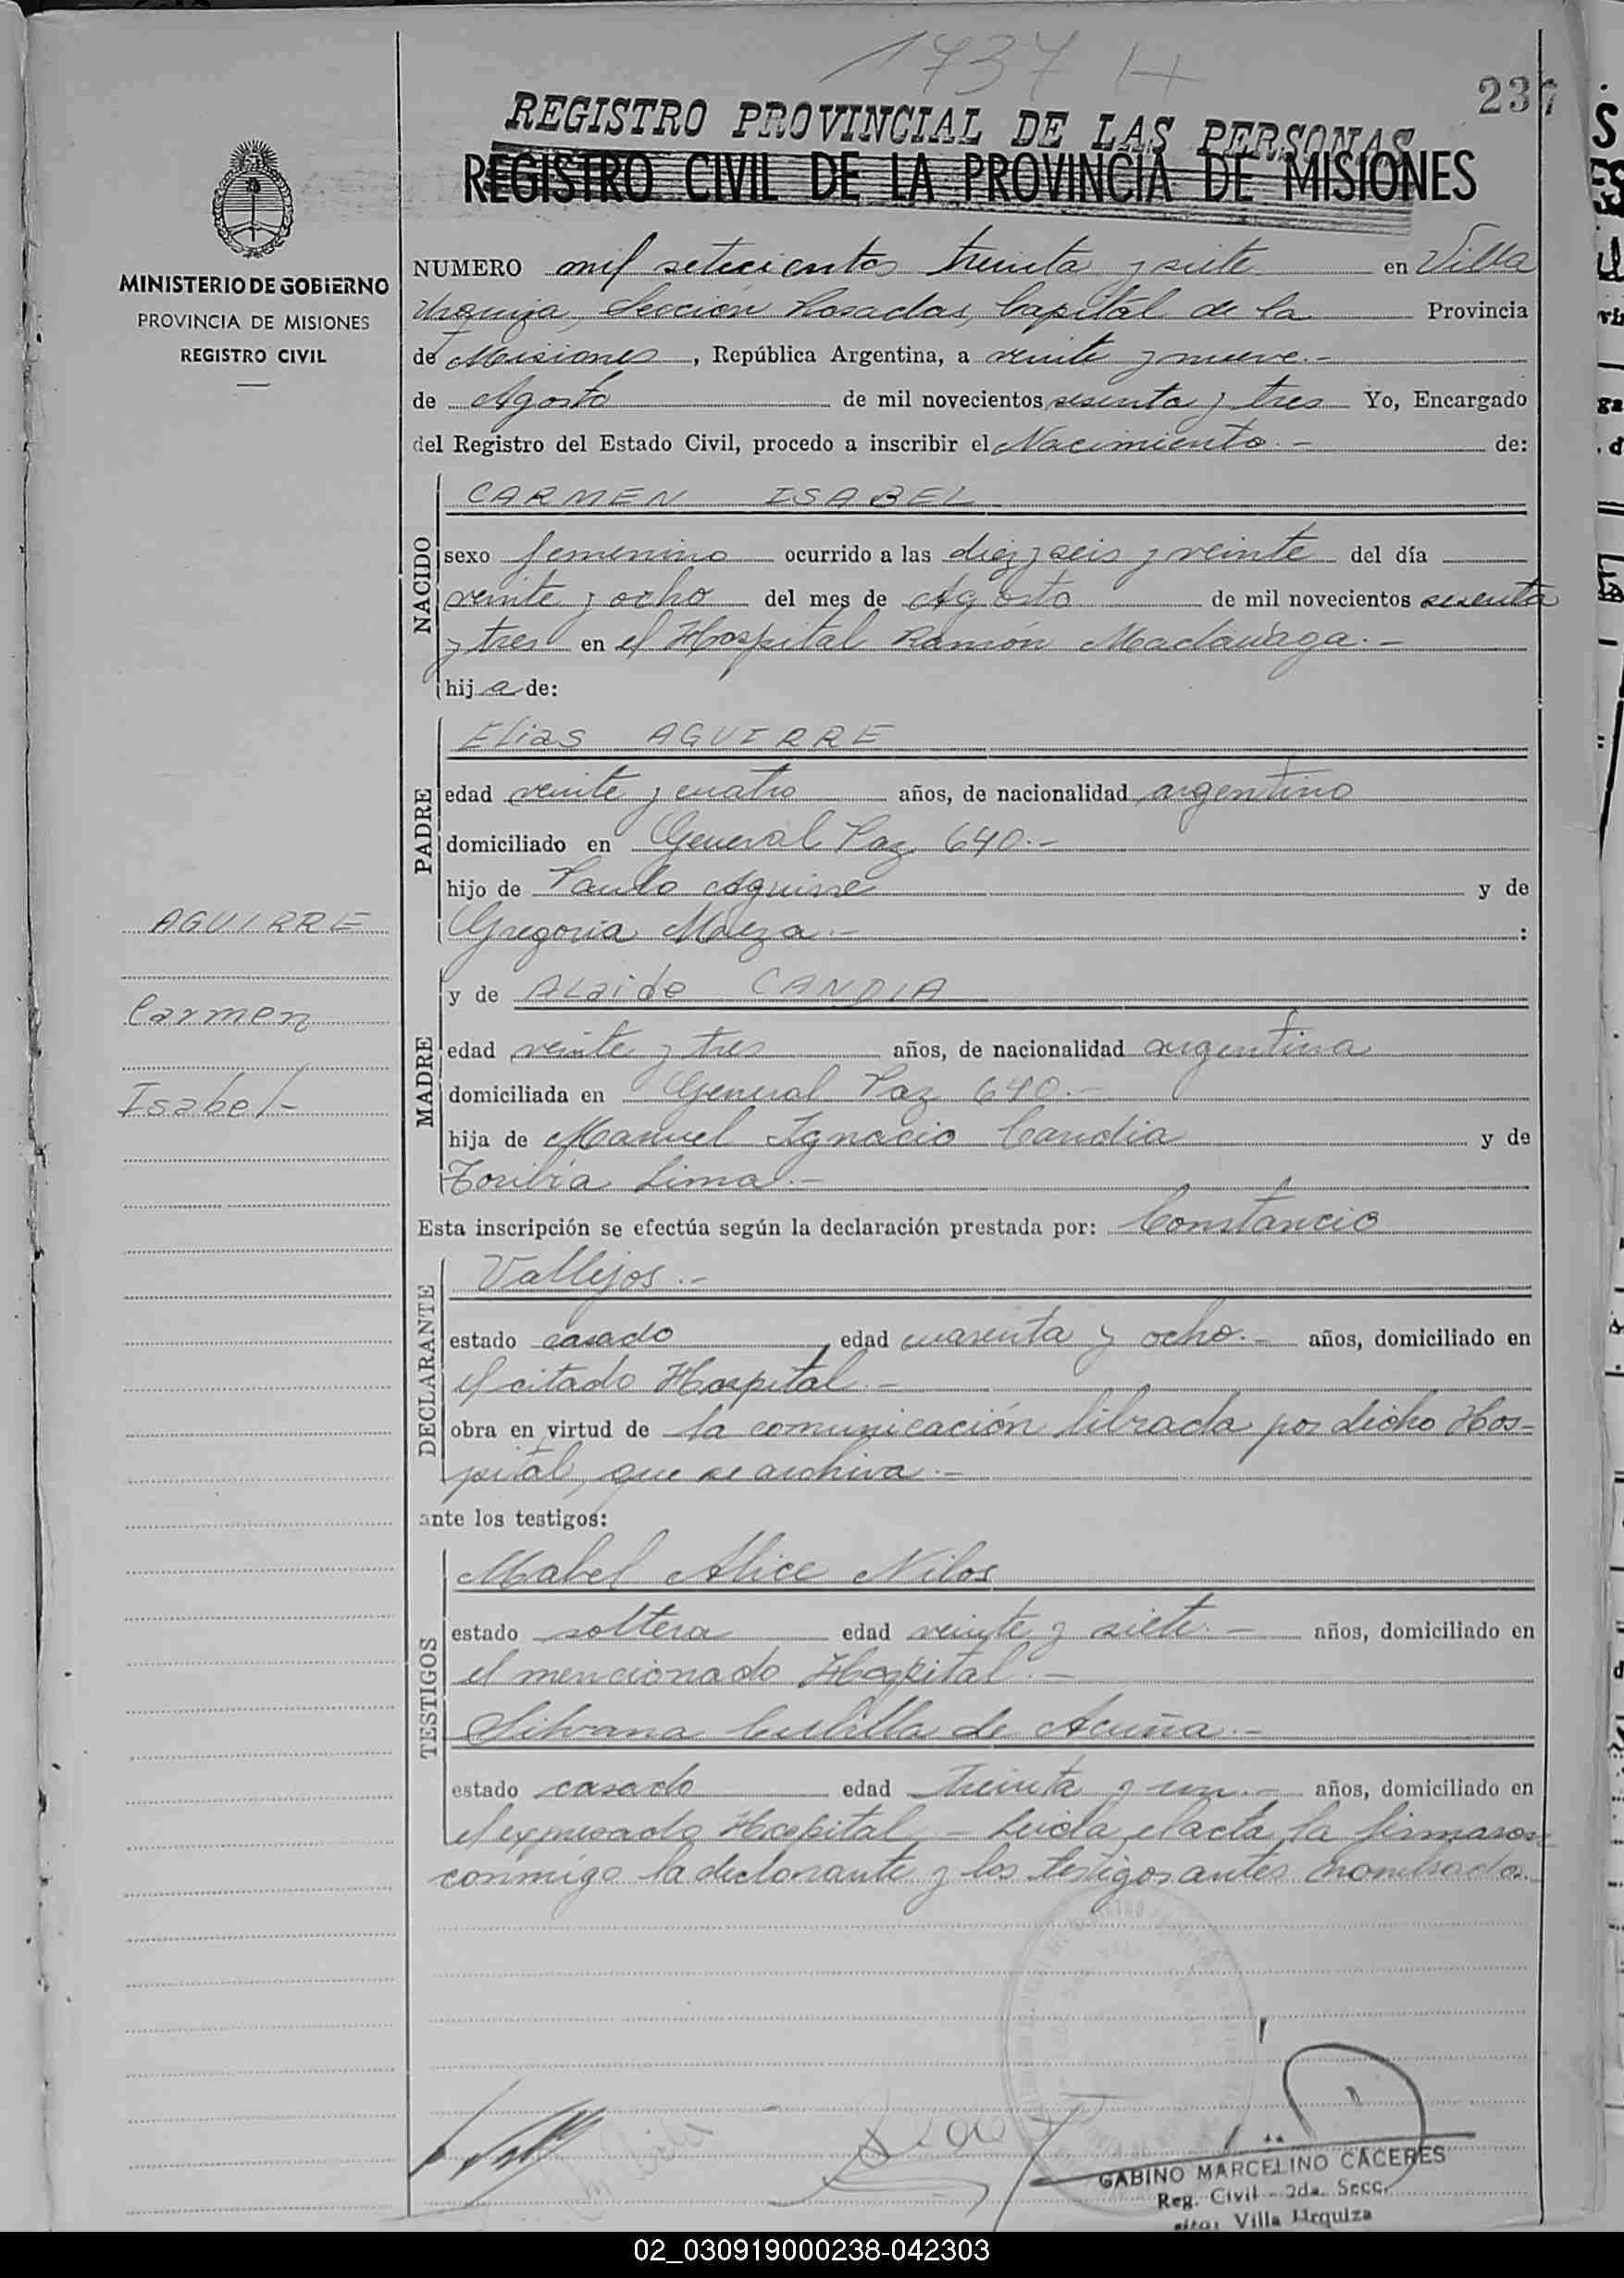 1737 H
237
REGISTRO PROVINCIAL DE LAS PERSONAS
REGISTRO CIVIL DE LA PROVINCIA DE MISIONES
MINISTERIO DE GOBIERNO
PROVINCIA DE MISIONES
REGISTRO CIVIL
NUMERO mil setecientos treinta y siete en Villa
Urquiza, Sección Posadas, Capital de la Provincia
de Misiones, República Argentina, a veinte y nueve.-
de Agosto de mil novecientos sesenta y tres Yo, Encargado
del Registro del Estado Civil, procedo a inscribir el Nacimiento.- de:
NACIDO
CARMEN ISABEL
sexo femenino ocurrido a las diez y seis y veinte del día
veinte y ocho del mes de Agosto de mil novecientos sesenta
y tres en el Hospital Ramón Madariaga.-
hija de:
PADRE
Elias AGUIRRE
edad veinte y cuatro años, de nacionalidad argentino
domiciliado en General Paz 640.-
hijo de Paulo Aguirre y de
Gregoria Meza.- :
AGUIRRE
Carmen
Isabel-
MADRE
y de ALaide CANDIA
edad veinte y tres años, de nacionalidad argentina
domiciliada en General Paz 640.-
hija de Manuel Ignacio Candia y de
Toribia Lima.-
Esta inscripción se efectúa según la declaración prestada por: Constancio
DECLARANTE
Vallejos.-
estado casado, edad cuarenta y ocho.- años, domiciliado en
el citado Hospital.-
obra en virtud de la comunicación librada por dicho Hos-
pital, que se archiva.-
ante los testigos:
TESTIGOS
Mabel Alice Nilos
estado soltera edad veinte y siete.- años, domiciliado en
el mencionado Hospital.-
Silvana de Acuña.-
estado casado edad treinta y un.- años, domiciliado en
el expresado Hospital.- Leida el acta, la firmaron
conmigo la declarante y los testigos antes nombrados.-
GABINO MARCELINO CACERES
Reg. Civil - 2da. Secc.
Villa Urquiza
02_030919000238-042303